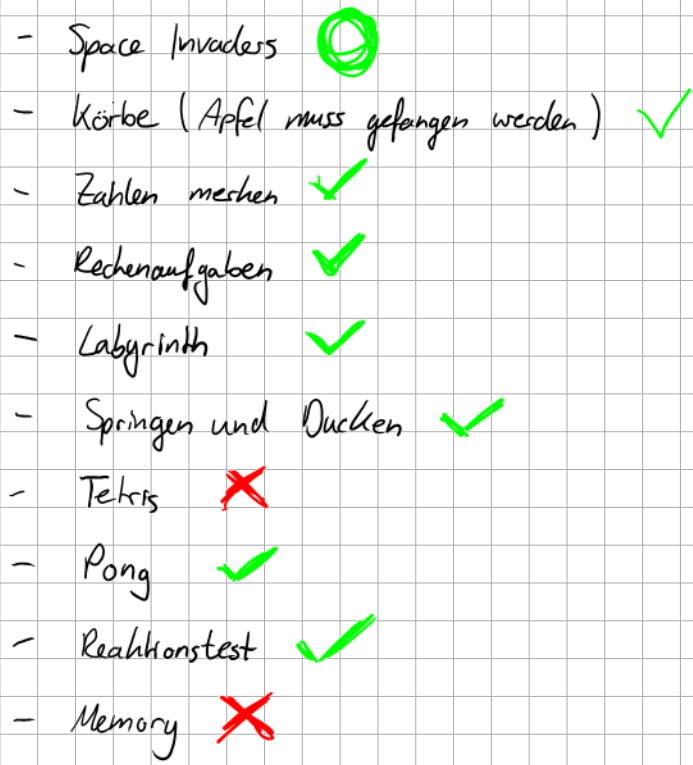 - Space Invaders
- Körbe (Apfel muss gefangen werden)
- Zahlen merken
- Rechenaufgaben
- Labyrinth
- Springen und Ducken
- Tetris
- Pong
- Reaktionstest
- Memory